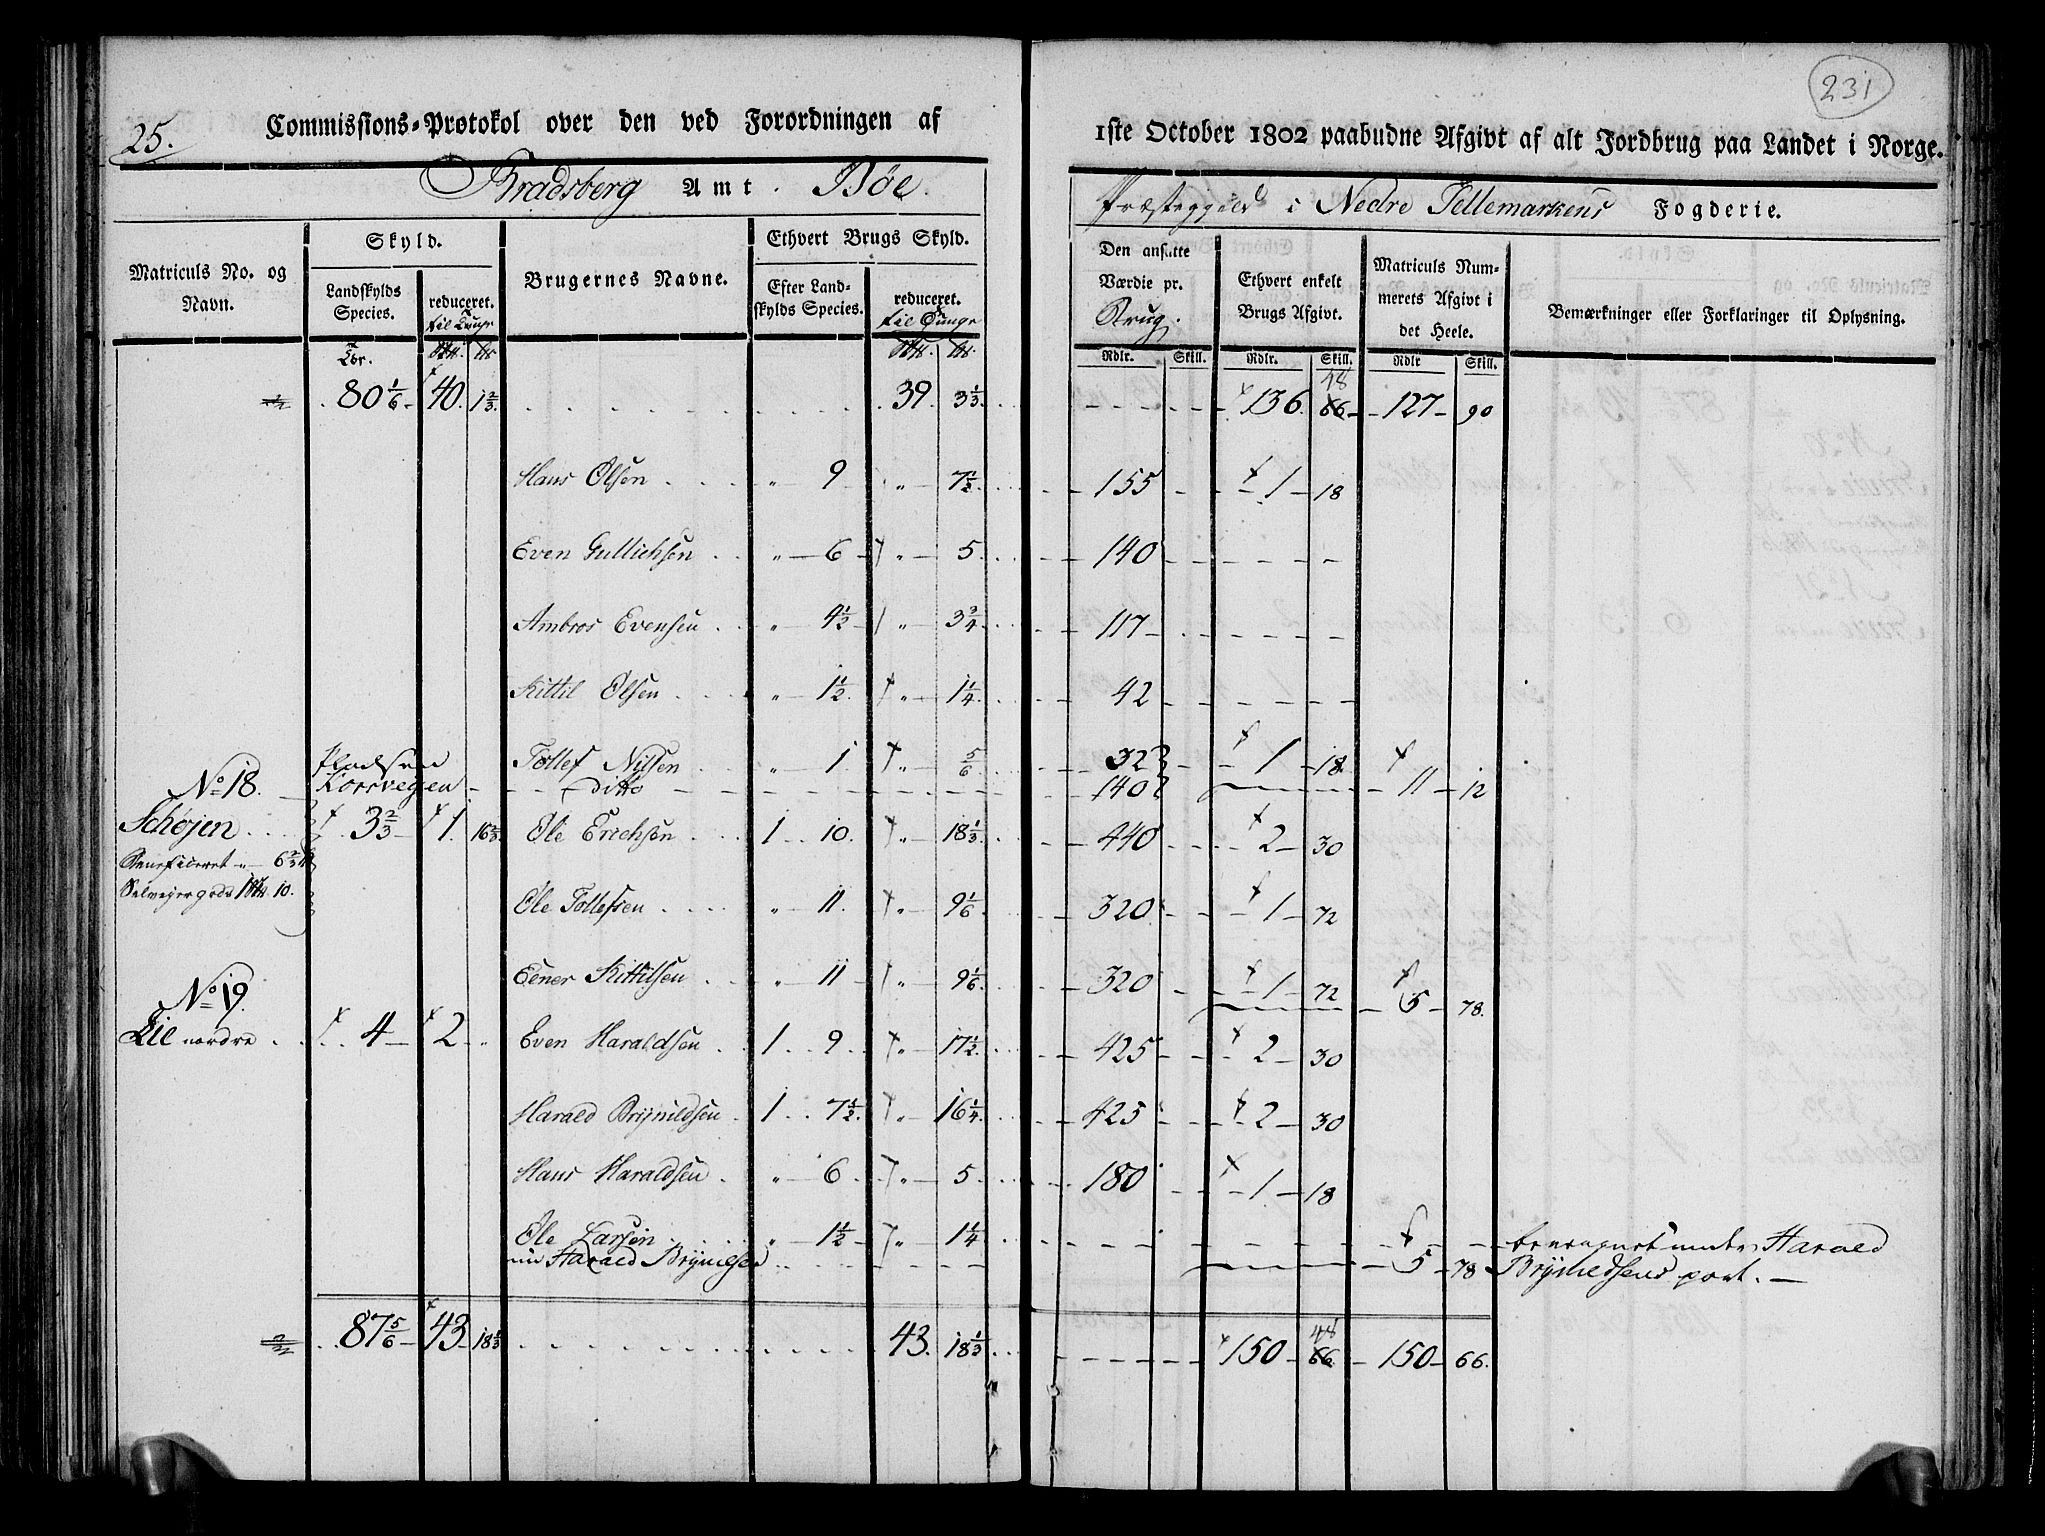 25.
Commissions-Protokol over den ved Forordningen af
Bradsberg Amt. Bøe.
Matriculs No. og Navn.
Skyld.
Landskylds Species.
reduceret.
til Tunge
Brugernes Navne.
Ethvert Brugs Skyld.
Efter Landskylds Species.
reduceret.
til Tunge
80 1/6 40. 1 2/3. 39. 3 1/3.
Hans Olsen 9 7 1/2.
Even Gullichsen 6 5.
Ambros Evensen 4 1/2 3 3/4
Kittil Olsen 1 1/2 1 1/4
Tollef Nilsen 1. 5/6
No 18. Pladsen Korsvegen Ditto
Schøjen 3 2/3 1. 16 2/3. Ole Erichsen 1 10. 18 1/3
Beneficeret 6 2/3
Selveyergods 10.
Ole Tollefsen 11. 9 1/6
Eener Kittilsen 11 9 1/6.
No 19.
Lie nordre 4 2 Even Haraldsen 1 9 17 1/2.
Harald Brynildsen 1 7 1/2. 16 1/4.
Hans Haraldsen 6 5
Ole Larsen 1 1/2 1 1/4
nu Harald Brynilsen
87 5/6 43 18 1/3 43. 18 1/3
231
1ste October 1802 paabudne Afgivt af alt Jordbrug paa Landet i Norge.
Præstegjeld i Nedre Tellemarkens Fogderie.
Den ansatte Værdie pr. Brug.
Ethvert enkelt Brugs Afgivt.
Matriculs Nummerets Afgivt i det Heele.
Bemærkninger eller Forklaringer til Oplysning.
Rdlr. Skill. Rdlr. Skill. Rdlr Skill.
136. 66 48 127 90
155 1 18
140
117
42
32 1 18
140 11 12
440 2 30
320 1 72
320 1 72 5 78.
425 2 30
425 2 30
180 1 18
5 78 Harald
Brynildsens part.
150 66. 48 150 66.